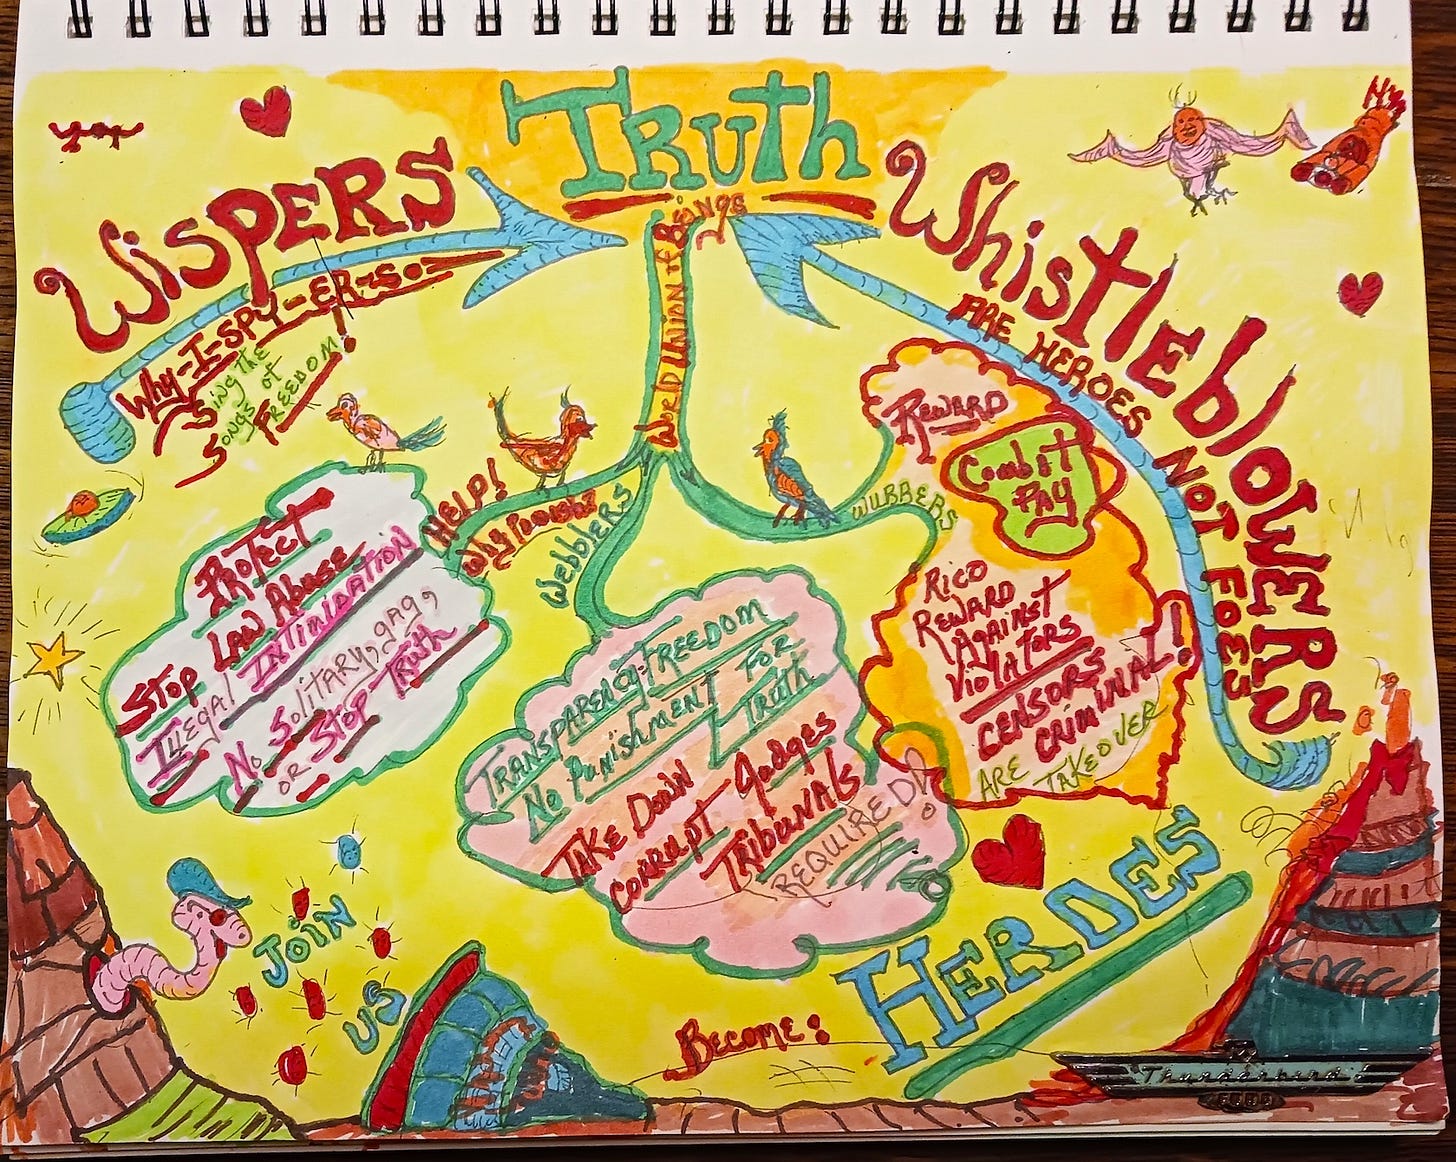 TRuth
WiSPERS
Why-I-SPY-ER-S
Sing the
Songs of
FREEDOM!
World Union of Beings
WhistleblowERS
ARE HEROES NOT FOES
HELP!
Why Punish?
WebblERS
WUBBERS
REWARD
Combat
PAY
PROTECT
STOP LAW Abuse
IllEgal INTIMIDATION
No Solitary, gag,
or STOP TRuth
RICO
REWARD
AGAINST
VIOLATORS
CENSORS
CRIMINAL!
ARE TAKEOVER
TRANSPARENCY=FREEDOM
No PUNISHMENT FOR
TRUTH
TAKE DOWN
CORRUPT Judges
TRIbUNAlS
REQUIRED!
JOIN
US
BECOME:
HERDES
Thunderbird